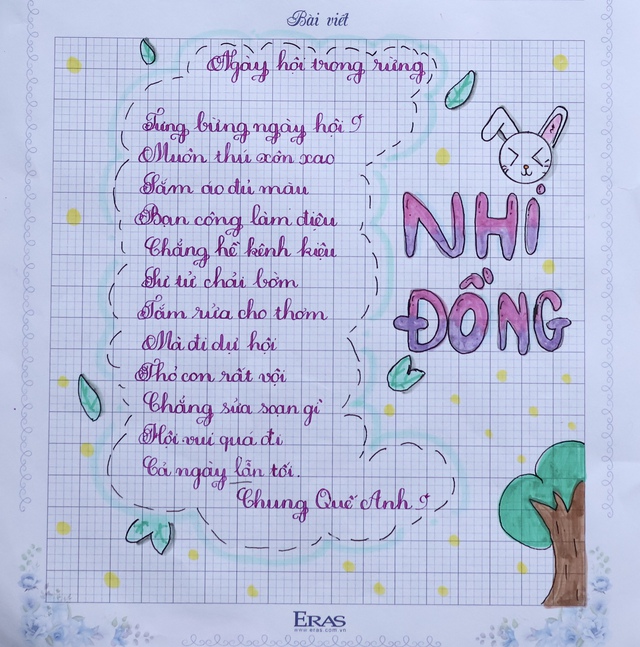 Bài viết
Ngày hội trong rừng
Tưng bừng ngày hội
Muôn thú xôn xao
Sắm áo đủ màu
Bạn công làm điệu
Chẳng hề kênh kiệu
Sư tử chải bờm
Tắm rửa cho thơm
Mà đi dự hội
Thỏ con rất vội
Chẳng sửa soạn gì
Hội vui quá đi
Cả ngày lẫn tối.
Chung Quế Anh
NHI
ĐỒNG
ERAS
www.eras.com.vn